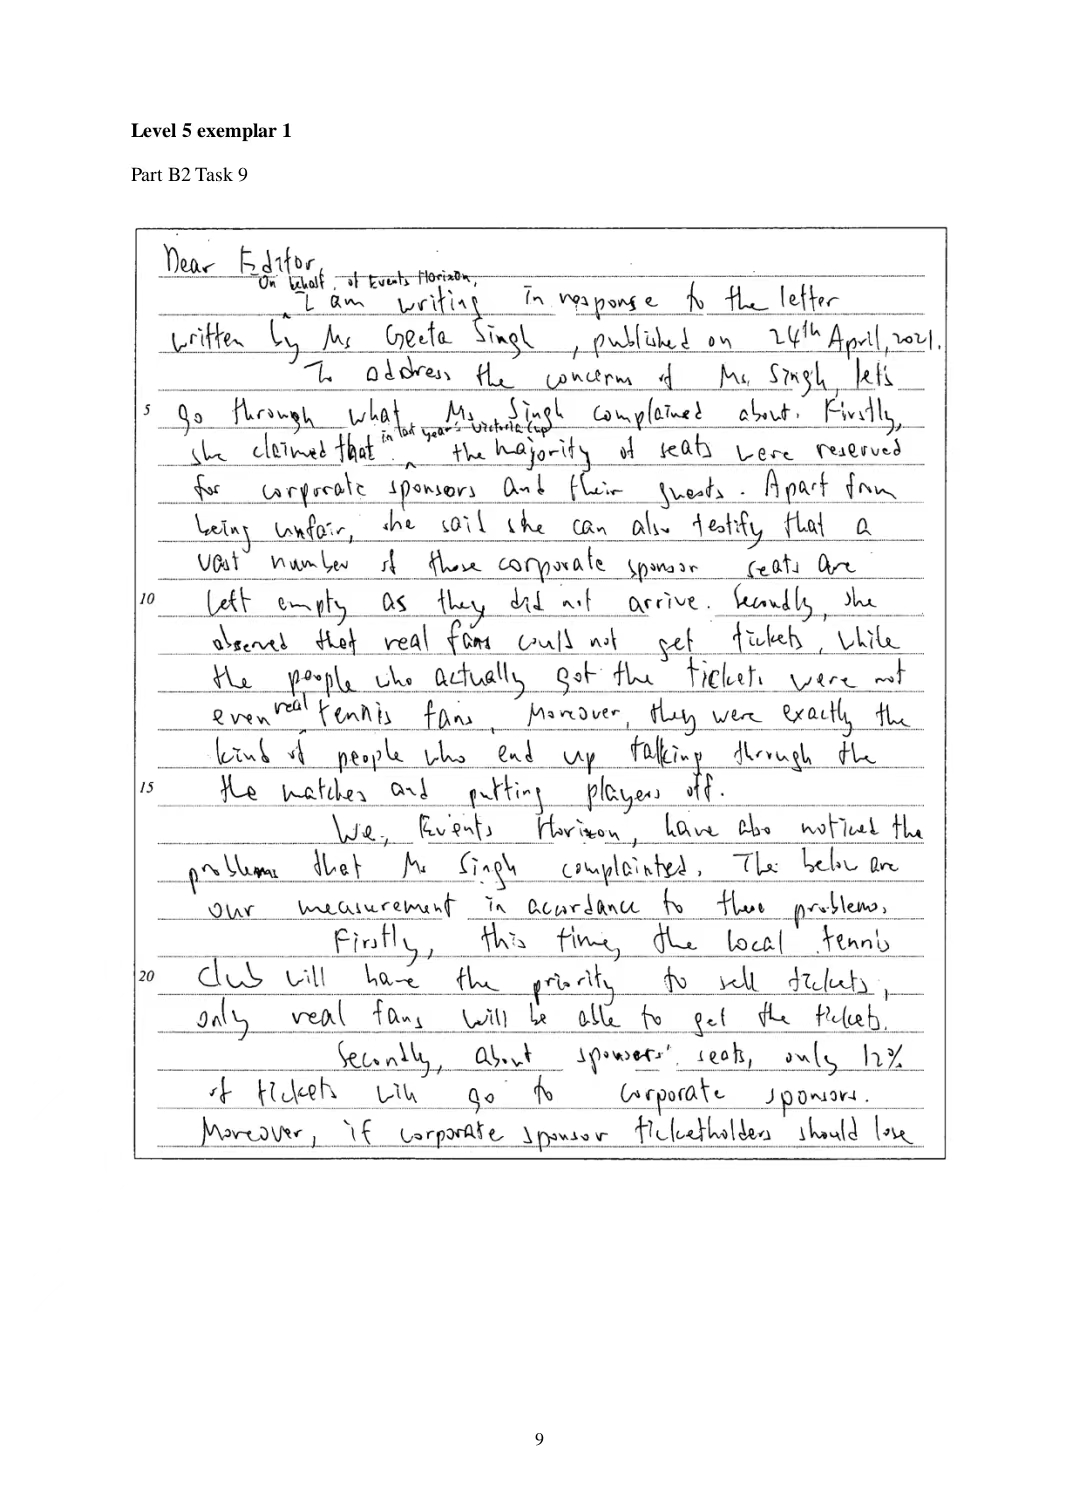 Level 5 exemplar 1
Part B2 Task 9
Dear Editor,
On behalf of Events Horizon,
I am writing in response to the letter
written by Ms Geeta Singh, published on 24th April, 2021.
To address the concerns of Ms. Singh, let's
5 go through what Ms. Singh complained about. Firstly,
in last year's Victoria Cup
she claimed that ^ the majority of seats were reserved
for corporate sponsors and their guests. Apart from
being unfair, she said she can also testify that a
vast number of those corporate sponsor seats are
10 left empty as they did not arrive. Secondly, she
observed that real fans could not get tickets, while
the people who actually got the tickets were not
even real tennis fans. Moreover, they were exactly the
kind of people who end up talking through the
15 the matches and putting players off.
We, Events Horizon, have also noticed the
problems that Ms Singh complainted. The below are
our measurement in accordance to these problems.
Firstly, this time, the local tennis
20 club will have the priority to sell tickets,
only real fans will be able to get the tickets.
Secondly, about sponsers' seats, only 12%
of tickets will go to corporate sponsors.
Moreover, if corporate sponsor ticketholders should lose
9